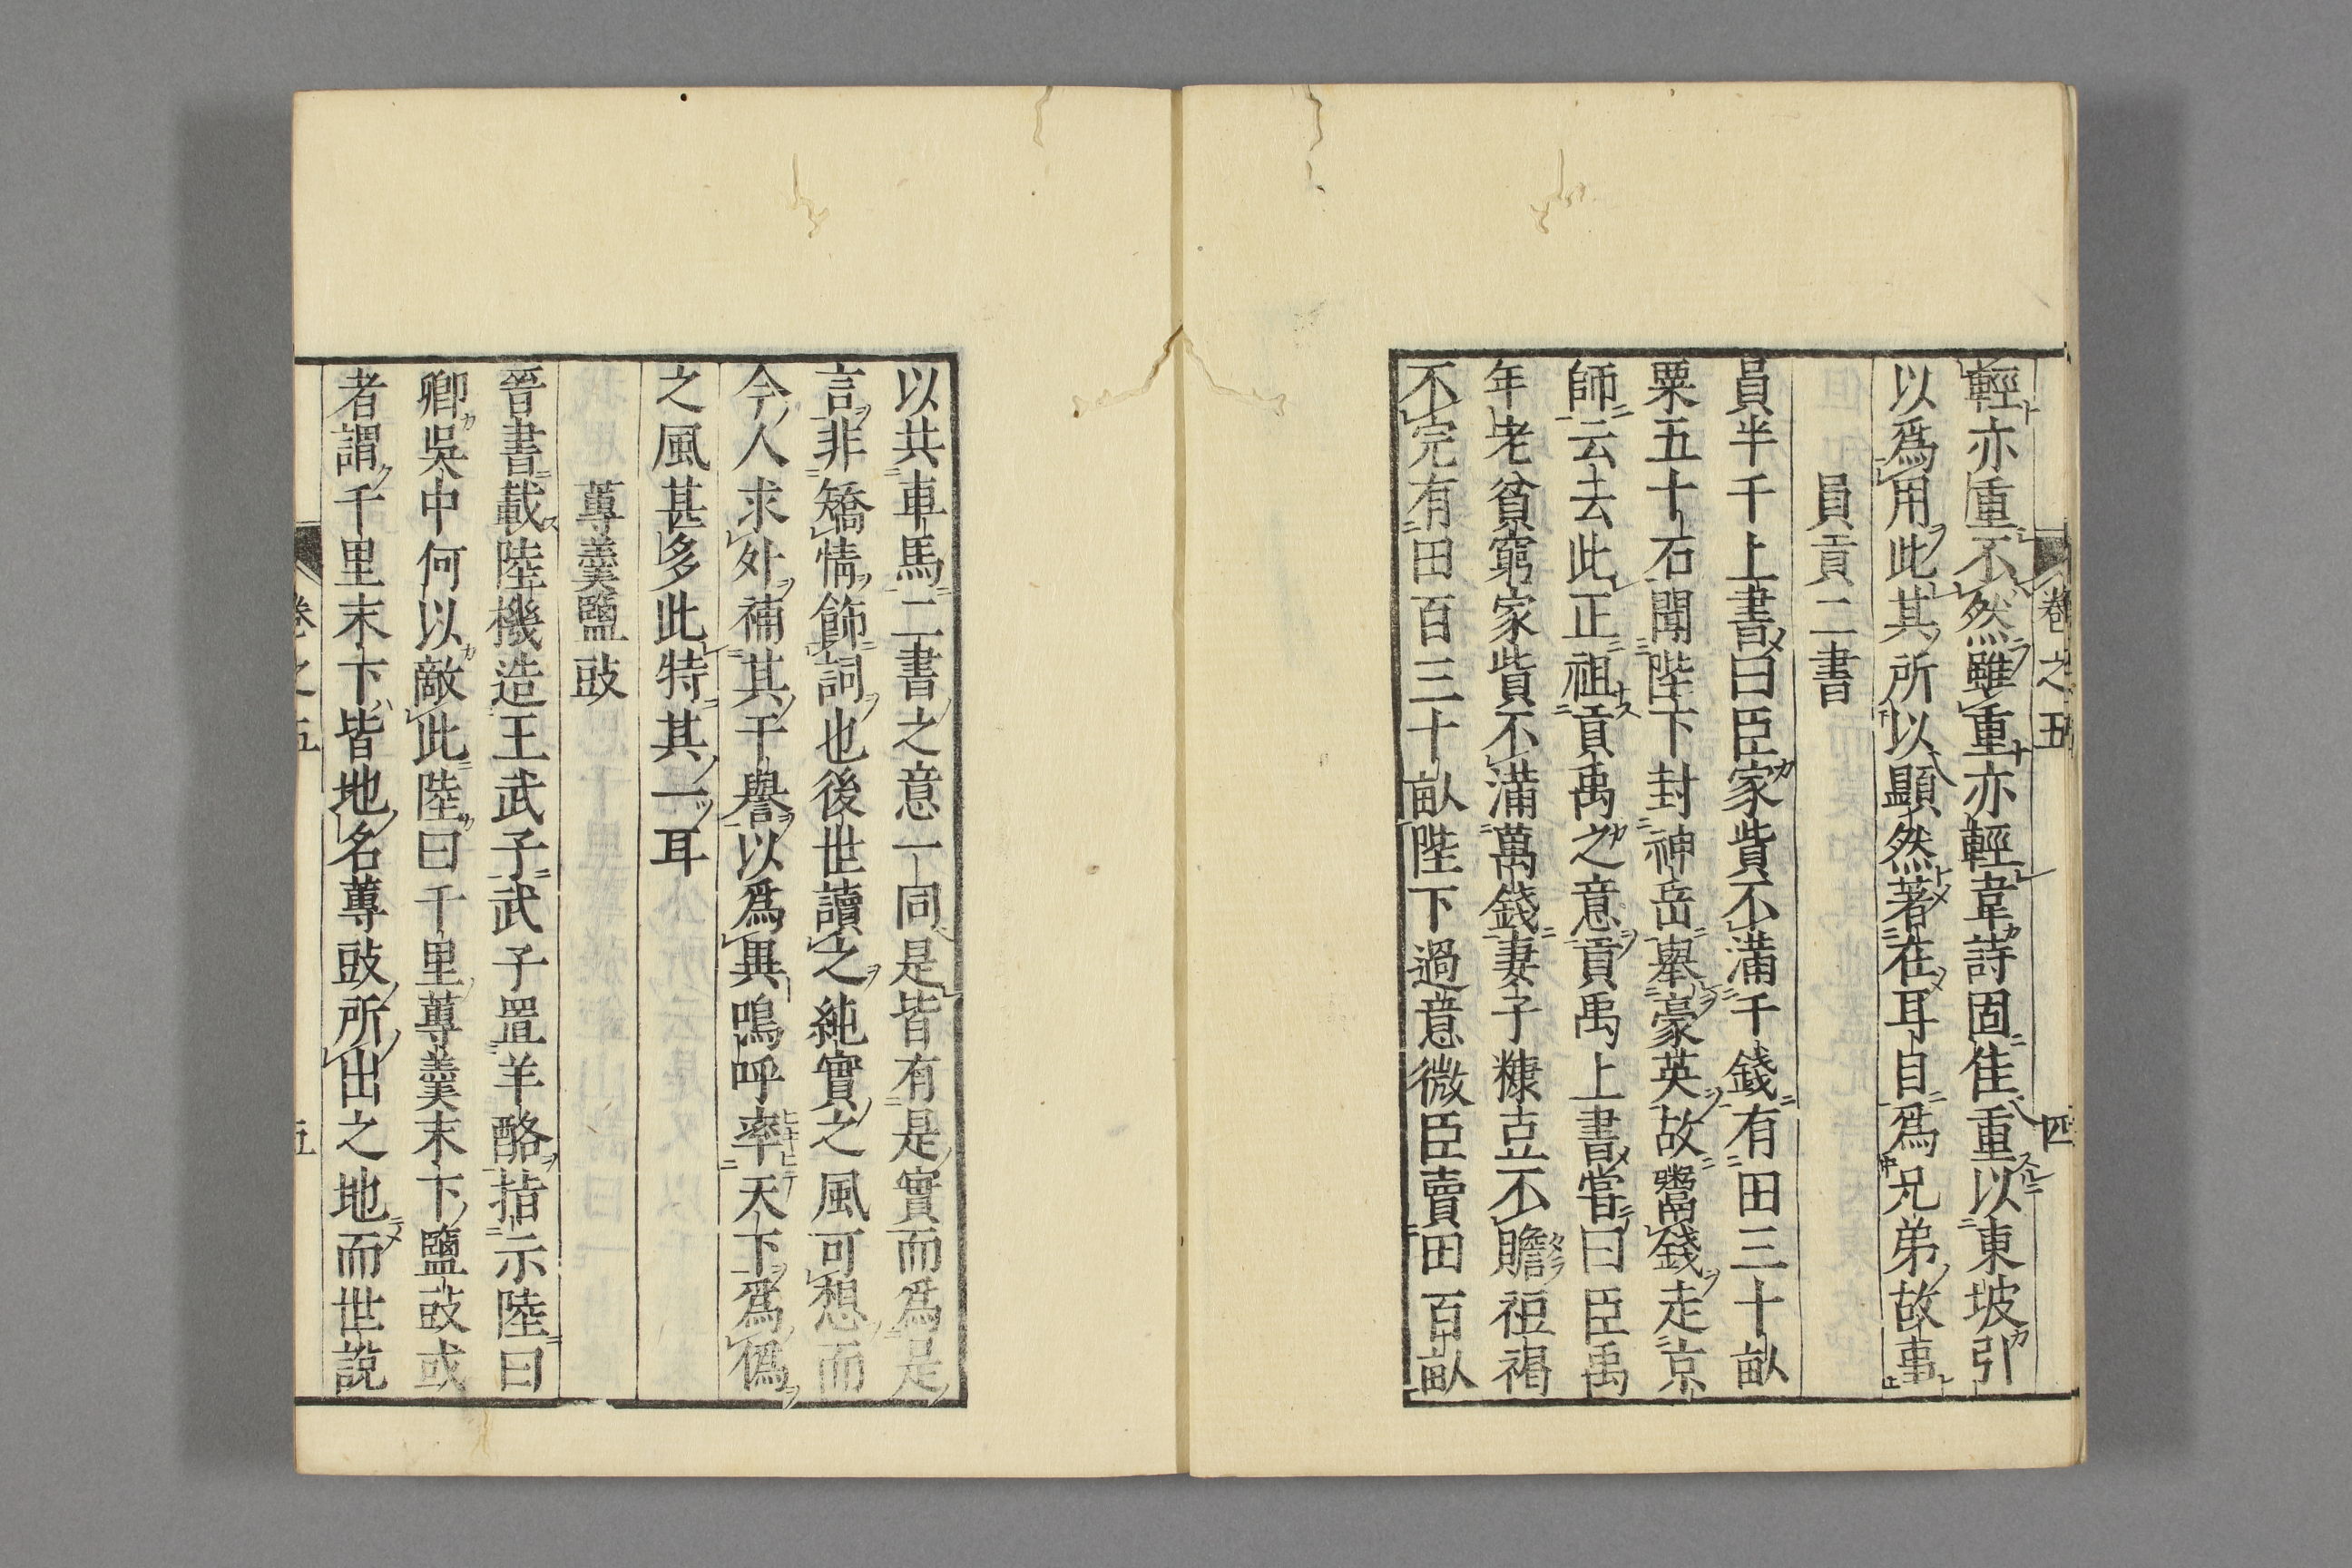 卷之五 四
輕亦重不然雖重亦輕韋詩固佳重以東坡引
以爲用此其所以顯然著在耳目爲兄弟故事
員貢二書
員半千上書曰臣家貲不滿千錢有田三十畝
粟五十石聞陛下封神岳舉豪英故鬻錢走京
師云去此正祖貢禹之意貢禹上書嘗曰臣禹
年老貧窮家貲不滿萬錢妻子糠豆不贍裋褐
不完有田百三十畝陛下過意微臣賣田百畝
以共車馬二書之意一同是皆有是實而爲是
言非矯情飾詞也後世讀之純實之風可想而
今人求外補其干譽以爲異嗚呼率天下爲僞
之風甚多此特其一耳
蓴羹鹽豉
晉書載陸機造王武子武子置羊酪指示陸曰
卿吳中何以敵此陸曰千里蓴羹末下鹽豉或
者謂千里末下皆地名蓴豉所出之地而世說
卷之五 五